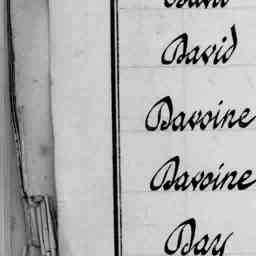 David
David
Davoine
Davoine
Day